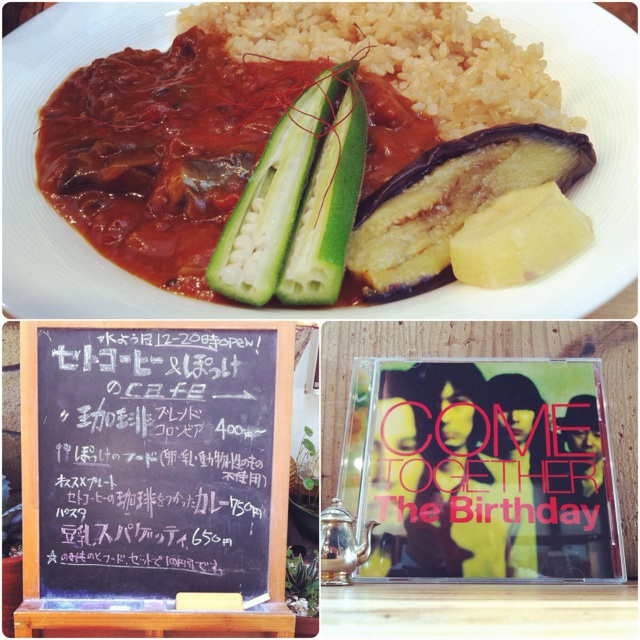 水よう日12-20時open!
セトコーヒー&ぽっけ
のcafe
珈琲 ブレンド
コロンビア 400円~
ぽっけのフード(卵・乳・動物性のもの
不使用)
オススメプレート
セトコーヒーの珈琲をつかったカレー750円
パスタ
豆乳スパゲッティ 650円
☆のみものとフード、セットで100円引です。
COME
TOGETHER
The Birthday